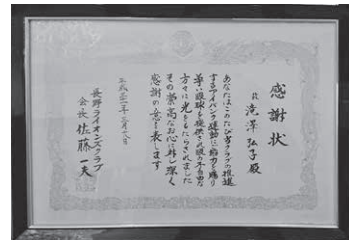 感謝状
故 滝澤弘子殿
あなたはこのたび当クラブの推進
するアイバンク運動に協力を賜り
尊い眼球を提供され眼の不自由な
方々に光をもたらされました
その崇高なお心に対し深く
感謝の意を表します
長野ライオンズクラブ
会長 佐藤一夫